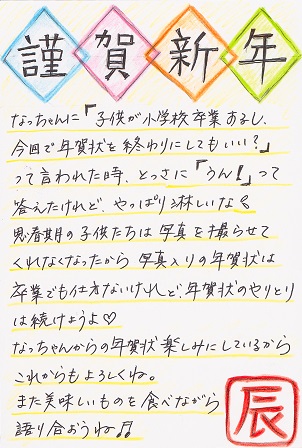 謹賀新年
なっちゃんに「子供が小学校卒業するし、
今回で年賀状を終わりにしてもいい？」
って言われた時、とっさに「うん！」って
答えたけれど、やっぱり淋しいな
思春期の子供たちは写真を撮らせて
くれなくなったから写真入りの年賀状は
卒業でも仕方ないけれど、年賀状のやりとり
は続けようよ♡
なっちゃんからの年賀状楽しみにしているから
これからもよろしくね。
また美味しいものを食べながら
語り合おうね♫
辰